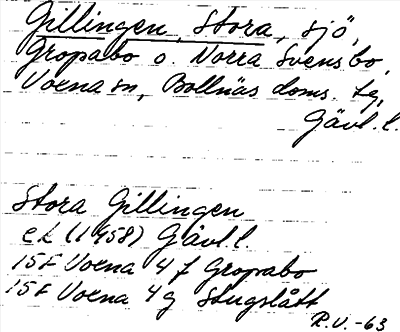 Gillingen, Stora, sjö,
Gropabo o. Norra Svensbo,
Voxna sn, Bollnäs doms. tg,
Gävl. l.
Stora Gillingen
ek (1958) Gävl. l.
15F Voxna 4 f Gropabo
15F Voxna 4 g Stugslått
R.V. -63